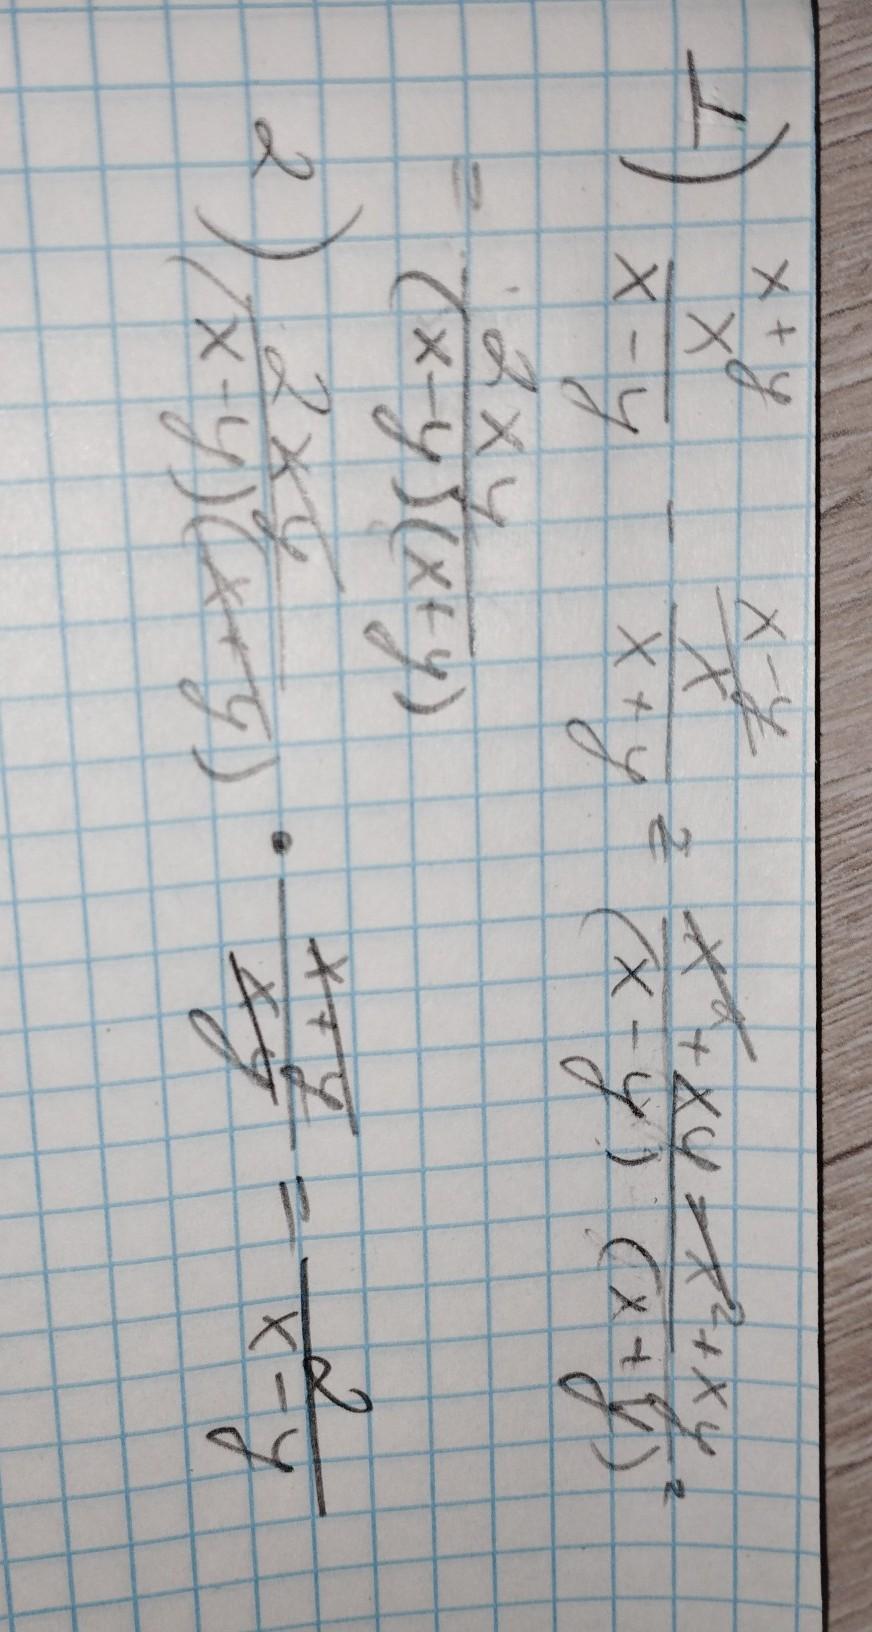 1) x+y x/(x-y) - x-y x/(x+y) = (x²+xy-x²+xy)/((x-y)(x+y)) =
= 2xy/((x-y)(x+y))
2) 2xy/((x-y)(x+y)) · (x+y)/(xy) = 2/(x-y)